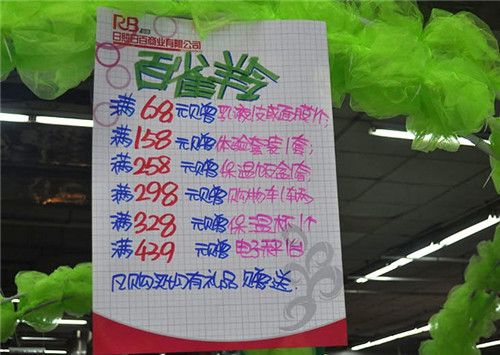 RB
日照日百商业有限公司
百雀羚
满68元赠乳液皮或面膜1个;
满158元赠体验套装1套;
满258元赠保温饭盒1套;
满298元赠购物车1辆;
满328元赠保温杯1个
满439元赠电子秤1台
凡购买均有礼品赠送.